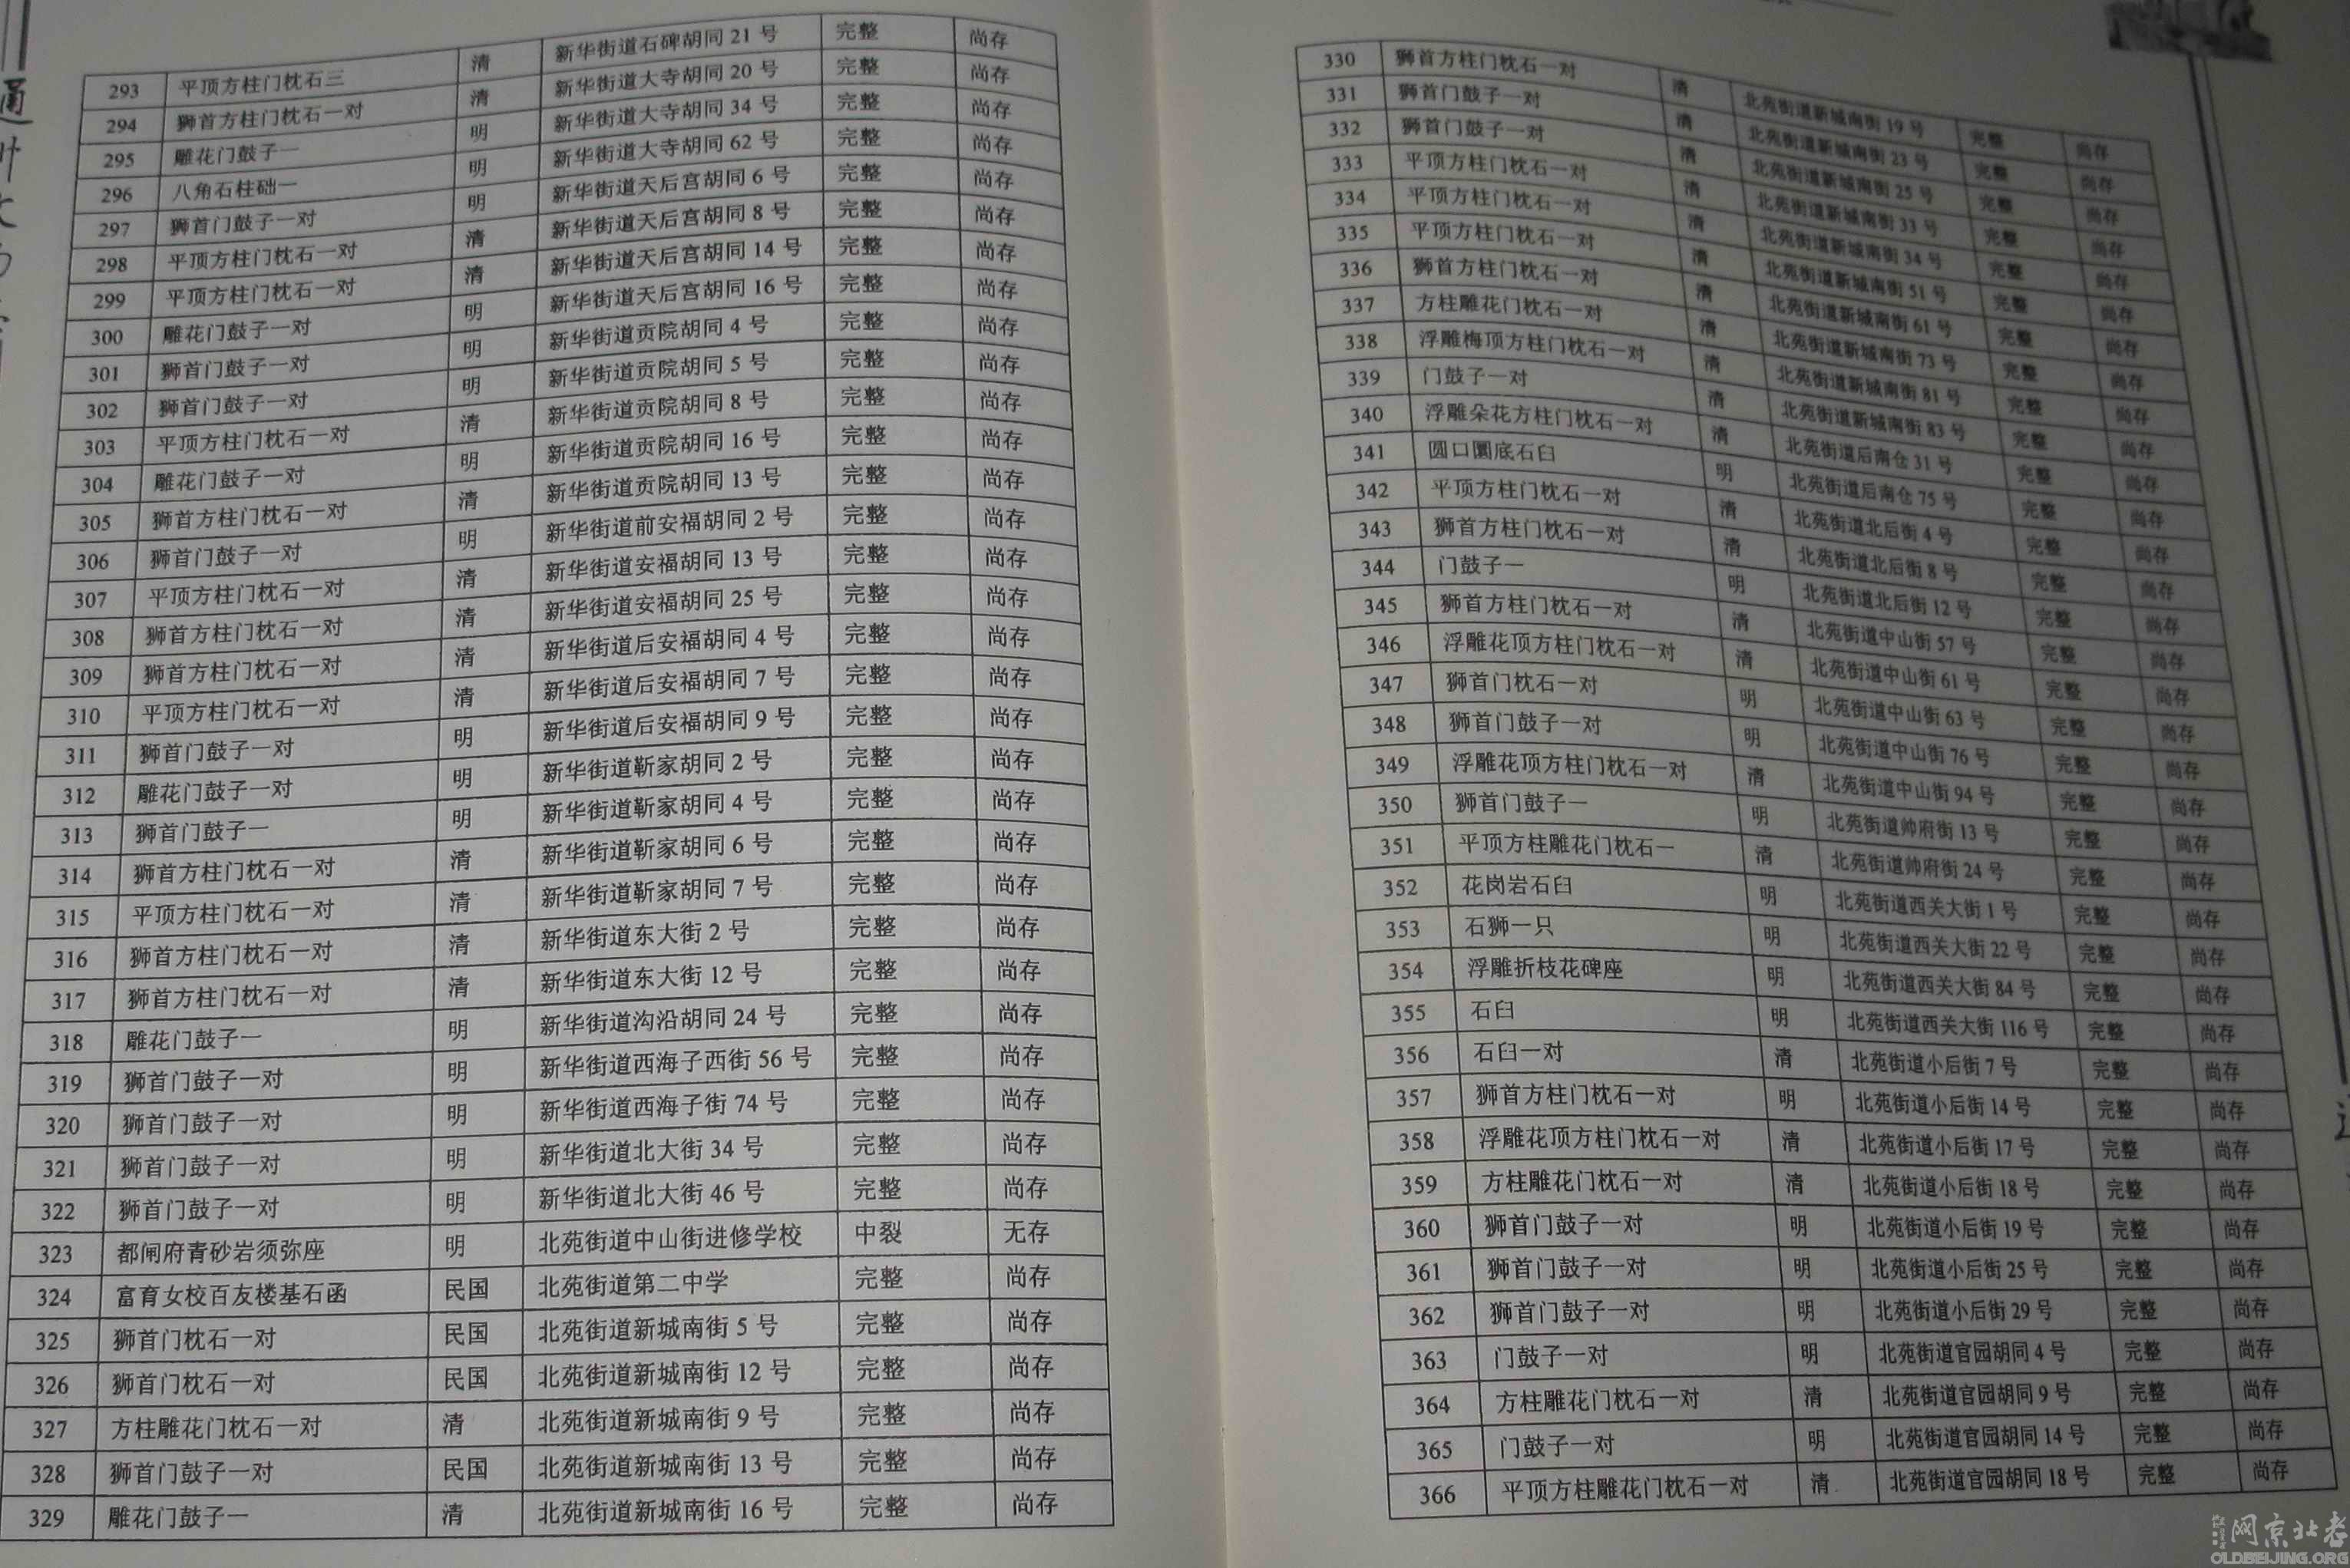 通州文物志
293 平顶方柱门枕石三 清 新华街道石碑胡同 21 号 完整 尚存
294 狮首方柱门枕石一对 清 新华街道大寺胡同 20 号 完整 尚存
295 雕花门鼓子一 明 新华街道大寺胡同 34 号 完整 尚存
296 八角石柱础一 明 新华街道大寺胡同 62 号 完整 尚存
297 狮首门鼓子一对 明 新华街道天后宫胡同 6 号 完整 尚存
298 平顶方柱门枕石一对 清 新华街道天后宫胡同 8 号 完整 尚存
299 平顶方柱门枕石一对 清 新华街道天后宫胡同 14 号 完整 尚存
300 雕花门鼓子一对 明 新华街道天后宫胡同 16 号 完整 尚存
301 狮首门鼓子一对 明 新华街道贡院胡同 4 号 完整 尚存
302 狮首门鼓子一对 明 新华街道贡院胡同 5 号 完整 尚存
303 平顶方柱门枕石一对 清 新华街道贡院胡同 8 号 完整 尚存
304 雕花门鼓子一对 明 新华街道贡院胡同 16 号 完整 尚存
305 狮首方柱门枕石一对 清 新华街道贡院胡同 13 号 完整 尚存
306 狮首门鼓子一对 明 新华街道前安福胡同 2 号 完整 尚存
307 平顶方柱门枕石一对 清 新华街道安福胡同 13 号 完整 尚存
308 狮首方柱门枕石一对 清 新华街道安福胡同 25 号 完整 尚存
309 狮首方柱门枕石一对 清 新华街道后安福胡同 4 号 完整 尚存
310 平顶方柱门枕石一对 清 新华街道后安福胡同 7 号 完整 尚存
311 狮首门鼓子一对 明 新华街道后安福胡同 9 号 完整 尚存
312 雕花门鼓子一对 明 新华街道靳家胡同 2 号 完整 尚存
313 狮首门鼓子一 明 新华街道靳家胡同 4 号 完整 尚存
314 狮首方柱门枕石一对 清 新华街道靳家胡同 6 号 完整 尚存
315 平顶方柱门枕石一对 清 新华街道靳家胡同 7 号 完整 尚存
316 狮首方柱门枕石一对 清 新华街道东大街 2 号 完整 尚存
317 狮首方柱门枕石一对 清 新华街道东大街 12 号 完整 尚存
318 雕花门鼓子一 明 新华街道沟沿胡同 24 号 完整 尚存
319 狮首门鼓子一对 明 新华街道西海子西街 56 号 完整 尚存
320 狮首门鼓子一对 明 新华街道西海子街 74 号 完整 尚存
321 狮首门鼓子一对 明 新华街道北大街 34 号 完整 尚存
322 狮首门鼓子一对 明 新华街道北大街 46 号 完整 尚存
323 都闸府青砂岩须弥座 明 北苑街道中山街进修学校 中裂 无存
324 富育女校百友楼基石函 民国 北苑街道第二中学 完整 尚存
325 狮首门枕石一对 民国 北苑街道新城南街 5 号 完整 尚存
326 狮首门枕石一对 民国 北苑街道新城南街 12 号 完整 尚存
327 方柱雕花门枕石一对 清 北苑街道新城南街 9 号 完整 尚存
328 狮首门鼓子一对 民国 北苑街道新城南街 13 号 完整 尚存
329 雕花门鼓子一 清 北苑街道新城南街 16 号 完整 尚存
330 狮首方柱门枕石一对 清 北苑街道新城南街 19 号 完整 尚存
331 狮首门鼓子一对 清 北苑街道新城南街 23 号 完整 尚存
332 狮首门鼓子一对 清 北苑街道新城南街 25 号 完整 尚存
333 平顶方柱门枕石一对 清 北苑街道新城南街 33 号 完整 尚存
334 平顶方柱门枕石一对 清 北苑街道新城南街 34 号 完整 尚存
335 平顶方柱门枕石一对 清 北苑街道新城南街 51 号 完整 尚存
336 狮首方柱门枕石一对 清 北苑街道新城南街 61 号 完整 尚存
337 方柱雕花门枕石一对 清 北苑街道新城南街 73 号 完整 尚存
338 浮雕梅顶方柱门枕石一对 清 北苑街道新城南街 81 号 完整 尚存
339 门鼓子一对 清 北苑街道新城南街 83 号 完整 尚存
340 浮雕朵花方柱门枕石一对 清 北苑街道后南仓 31 号 完整 尚存
341 圆口圜底石臼 明 北苑街道后南仓 75 号 完整 尚存
342 平顶方柱门枕石一对 清 北苑街道北后街 4 号 完整 尚存
343 狮首方柱门枕石一对 清 北苑街道北后街 8 号 完整 尚存
344 门鼓子一 明 北苑街道北后街 12 号 完整 尚存
345 狮首方柱门枕石一对 清 北苑街道中山街 57 号 完整 尚存
346 浮雕花顶方柱门枕石一对 清 北苑街道中山街 61 号 完整 尚存
347 狮首门枕石一对 明 北苑街道中山街 63 号 完整 尚存
348 狮首门鼓子一对 明 北苑街道中山街 76 号 完整 尚存
349 浮雕花顶方柱门枕石一对 清 北苑街道中山街 94 号 完整 尚存
350 狮首门鼓子一 明 北苑街道帅府街 13 号 完整 尚存
351 平顶方柱雕花门枕石一 清 北苑街道帅府街 24 号 完整 尚存
352 花岗岩石臼 明 北苑街道西关大街 1 号 完整 尚存
353 石狮一只 明 北苑街道西关大街 22 号 完整 尚存
354 浮雕折枝花碑座 明 北苑街道西关大街 84 号 完整 尚存
355 石臼 明 北苑街道西关大街 116 号 完整 尚存
356 石臼一对 清 北苑街道小后街 7 号 完整 尚存
357 狮首方柱门枕石一对 明 北苑街道小后街 14 号 完整 尚存
358 浮雕花顶方柱门枕石一对 清 北苑街道小后街 17 号 完整 尚存
359 方柱雕花门枕石一对 清 北苑街道小后街 18 号 完整 尚存
360 狮首门鼓子一对 明 北苑街道小后街 19 号 完整 尚存
361 狮首门鼓子一对 明 北苑街道小后街 25 号 完整 尚存
362 狮首门鼓子一对 明 北苑街道小后街 29 号 完整 尚存
363 门鼓子一对 明 北苑街道官园胡同 4 号 完整 尚存
364 方柱雕花门枕石一对 清 北苑街道官园胡同 9 号 完整 尚存
365 门鼓子一对 明 北苑街道官园胡同 14 号 完整 尚存
366 平顶方柱雕花门枕石一对 清 北苑街道官园胡同 18 号 完整 尚存
网京北老
OLDBEIJING.ORG